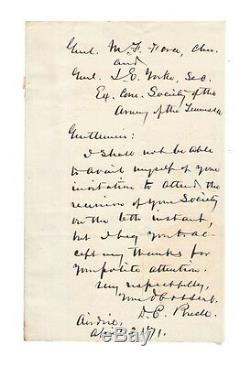 Genl. M. F. Force, Chn.
and
Genl. L. E. Yorke, Sec.
Ex. Com. Society of the
Army of the Tennessee
Gentlemen:
I shall not be able
to avail myself of your
invitation to attend the
reunion of your Society
on the 6th instant,
but I beg you to ac-
cept my thanks for
your polite attention.
Very respectfully,
Your obt servt.
D. C. Buell.
Airdrie,
1871.